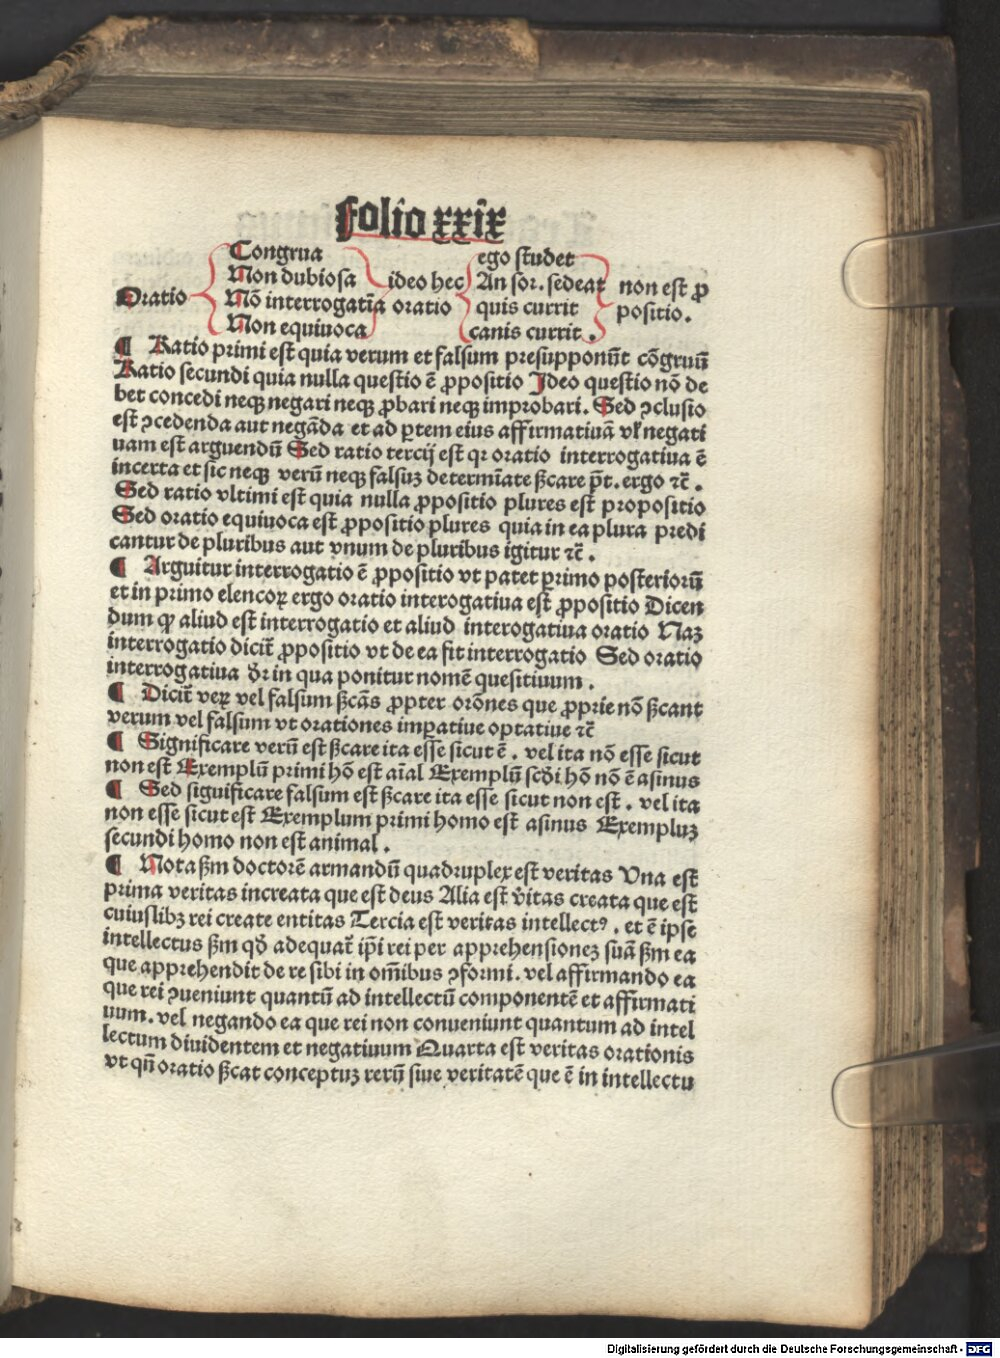 folio xxix
Oratio
Congrua
Non dubiosa
Nō interrogatīa
Non equiuoca
ideo hec
oratio
ego studet
An sor. sedeat
quis currit
canis currit.
non est ꝓ
positio.
¶ Ratio primi est quia verum et falsum presupponūt cōgruū
Ratio secundi quia nulla questio ē ꝓpositio Ideo questio nō de
bet concedi neqꝫ negari neqꝫ ꝓbari neqꝫ improbari. Sed ꝯclusio
est ꝯcedenda aut negāda et ad ꝑtem eius affirmatiuā vꝉ negati
uam est arguendū Sed ratio tercij est qꝛ oratio interrogatiua ē
incerta et sic neqꝫ verū neqꝫ falsuꝫ determīate ßcare p̄t. ergo ⁊c̄.
Sed ratio vltimi est quia nulla ꝓpositio plures est propositio
Sed oratio equiuoca est ꝓpositio plures quia in ea plura predi
cantur de pluribus aut vnum de pluribus igitur ⁊c̄.
¶ Arguitur interrogatio ē ꝓpositio vt patet primo posterioꝛū
et in primo elencoꝝ ergo oratio interogatiua est ꝓpositio Dicen
dum ꝙ aliud est interrogatio et aliud interogatiua oratio Naꝫ
interrogatio dicit̄ ꝓpositio vt de ea fit interrogatio Sed oratio
interrogatiua dr̄ in qua ponitur nomē quesitiuum.
¶ Dicit̄ veꝝ vel falsum ßcās ꝓpter orōnes que ꝓprie nō ßcant
verum vel falsum vt orationes imꝑatiue optatiue ⁊c̄
¶ Significare verū est ßcare ita esse sicut ē. vel ita nō esse sicut
non est Exemplū primi hō est aīal Exemplū scďi hō nō ē asinus
¶ Sed siguificare falsum est ßcare ita esse sicut non est. vel ita
non esse sicut est Exemplum primi homo est asinus Exempluꝫ
secundi homo non est animal.
¶ Nota ßm doctorē armandū quadruplex est veritas Una est
prima veritas increata que est deus Alia est v̓itas creata que est
cuiuslibꝫ rei create entitas Tercia est veritas intellectꝰ. et ē ipse
intellectus ßm qď adequat̄ ip̄i rei per apprehensioneꝫ suā ßm ea
que apprehendit de re sibi in om̄ibus ꝯformi. vel affirmando ea
que rei ꝯueniunt quantū ad intellectū componentē et affirmati
uum. vel negando ea que rei non conueniunt quantum ad intel
lectum diuidentem et negatiuum Quarta est veritas orationis
vt qn̄ oratio ßcat conceptuꝫ rerū siue veritatē que ē in intellectu
Digitalisierung gefördert durch die Deutsche Forschungsgemeinschaft - DFG